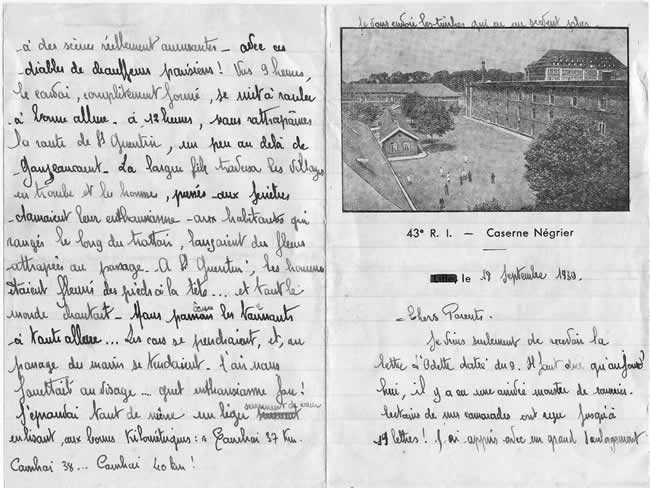 à des scènes réellement amusantes – avec ces
diables de chauffeurs parisiens ! Vers 9 heures,
le convoi, complètement formé, se met à rouler
à bonne allure – à 12 heures, nous rattrapions
la route de St Quentin, un peu au delà de
Gouzeaucourt – La longue file traversa les villages
en trombe et les hommes, pressés aux fenêtres
clamaient leur enthousiasme – aux habitants qui
rangés le long du trottoir, lançaient des fleurs
attrapées au passage. A St Quentin, les hommes
étaient fleuris des pieds à la tête... et tout le
monde chantait – Nous dans les tournants
à toute allure... Les cars se penchaient, et, au
passage des marins se tordaient. L'air nous
fouettait au visage... quel enthousiasme fou !
J'éprouvai tout de même un léger serrement de cœur
en lisant, aux bornes kilométriques : Cambrai 37 km.
Cambrai 38... Cambrai 40 km !
Je vous envoie les timbres qui ne me servent plus.
43e R. I. — Caserne Négrier
Lille, le 18 Septembre 1939.
Chers Parents.
Je viens seulement de recevoir la
lettre d'Odette datée du 9. Il faut dire qu'aujourd'
hui, il y a eu une arrivée monstre de courrier.
Certains de mes camarades ont reçu jusqu'à
19 lettres ! J'ai appris avec un grand soulagement